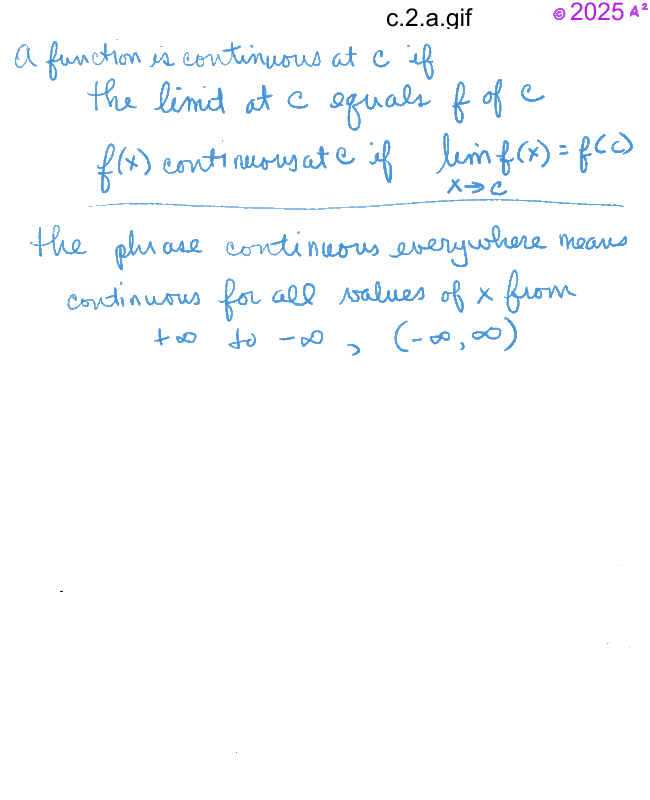 c.2.a.gif
© 2025 A²
A function is continuous at c if
the limit at c equals f of c
f(x) continuous at c if lim f(x) = f(c)
x→c
the phrase continuous everywhere means
continuous for all values of x from
+∞ to -∞, (-∞, ∞)